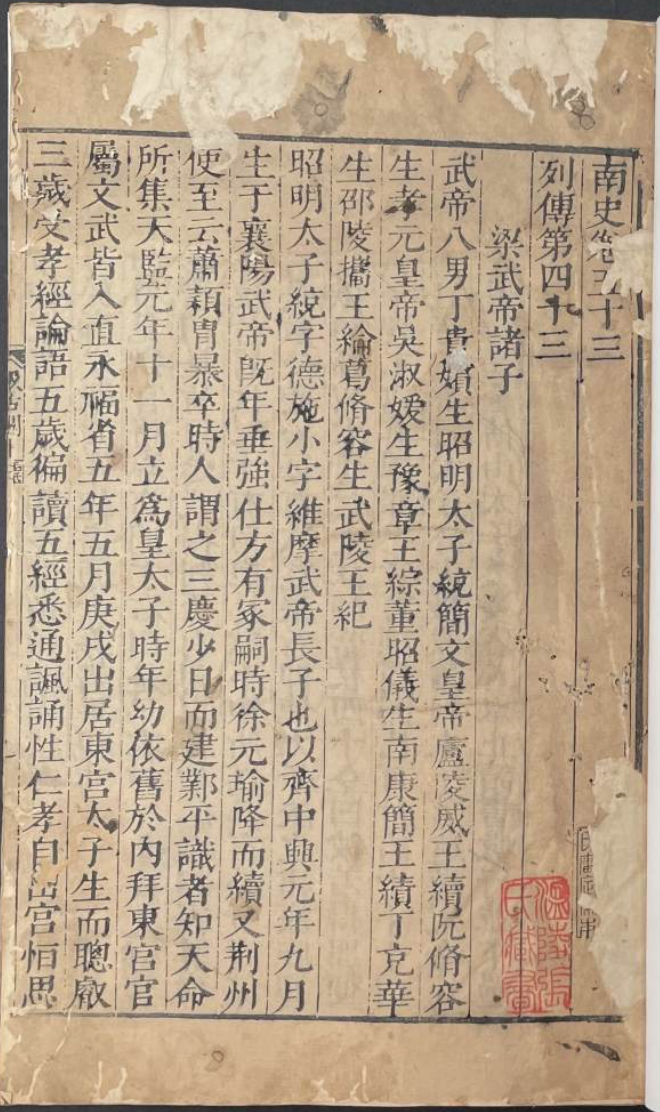 南史卷五十三
列傳第四十三
梁武帝諸子
武帝八男丁貴嬪生昭明太子統簡文皇帝廬陵威王續阮脩容
生孝元皇帝吳淑媛生豫章王綜董昭儀生南康簡王績丁充華
生邵陵攜王綸葛脩容生武陵王紀
昭明太子統字德施小字維摩武帝長子也以齊中興元年九月
生于襄陽武帝旣年垂強仕方有冢嗣時徐元瑜降而續又荆州
使至云蕭穎胄暴卒時人謂之三慶少日而建鄴平識者知天命
所集天監元年十一月立爲皇太子時年幼依舊於內拜東宮官
屬文武皆入直永福省五年五月庚戌出居東宮太子生而聰叡
三歲受孝經論語五歲徧讀五經悉通諷誦性仁孝自出宮恒思
汲古閣
溫陵張
氏藏書